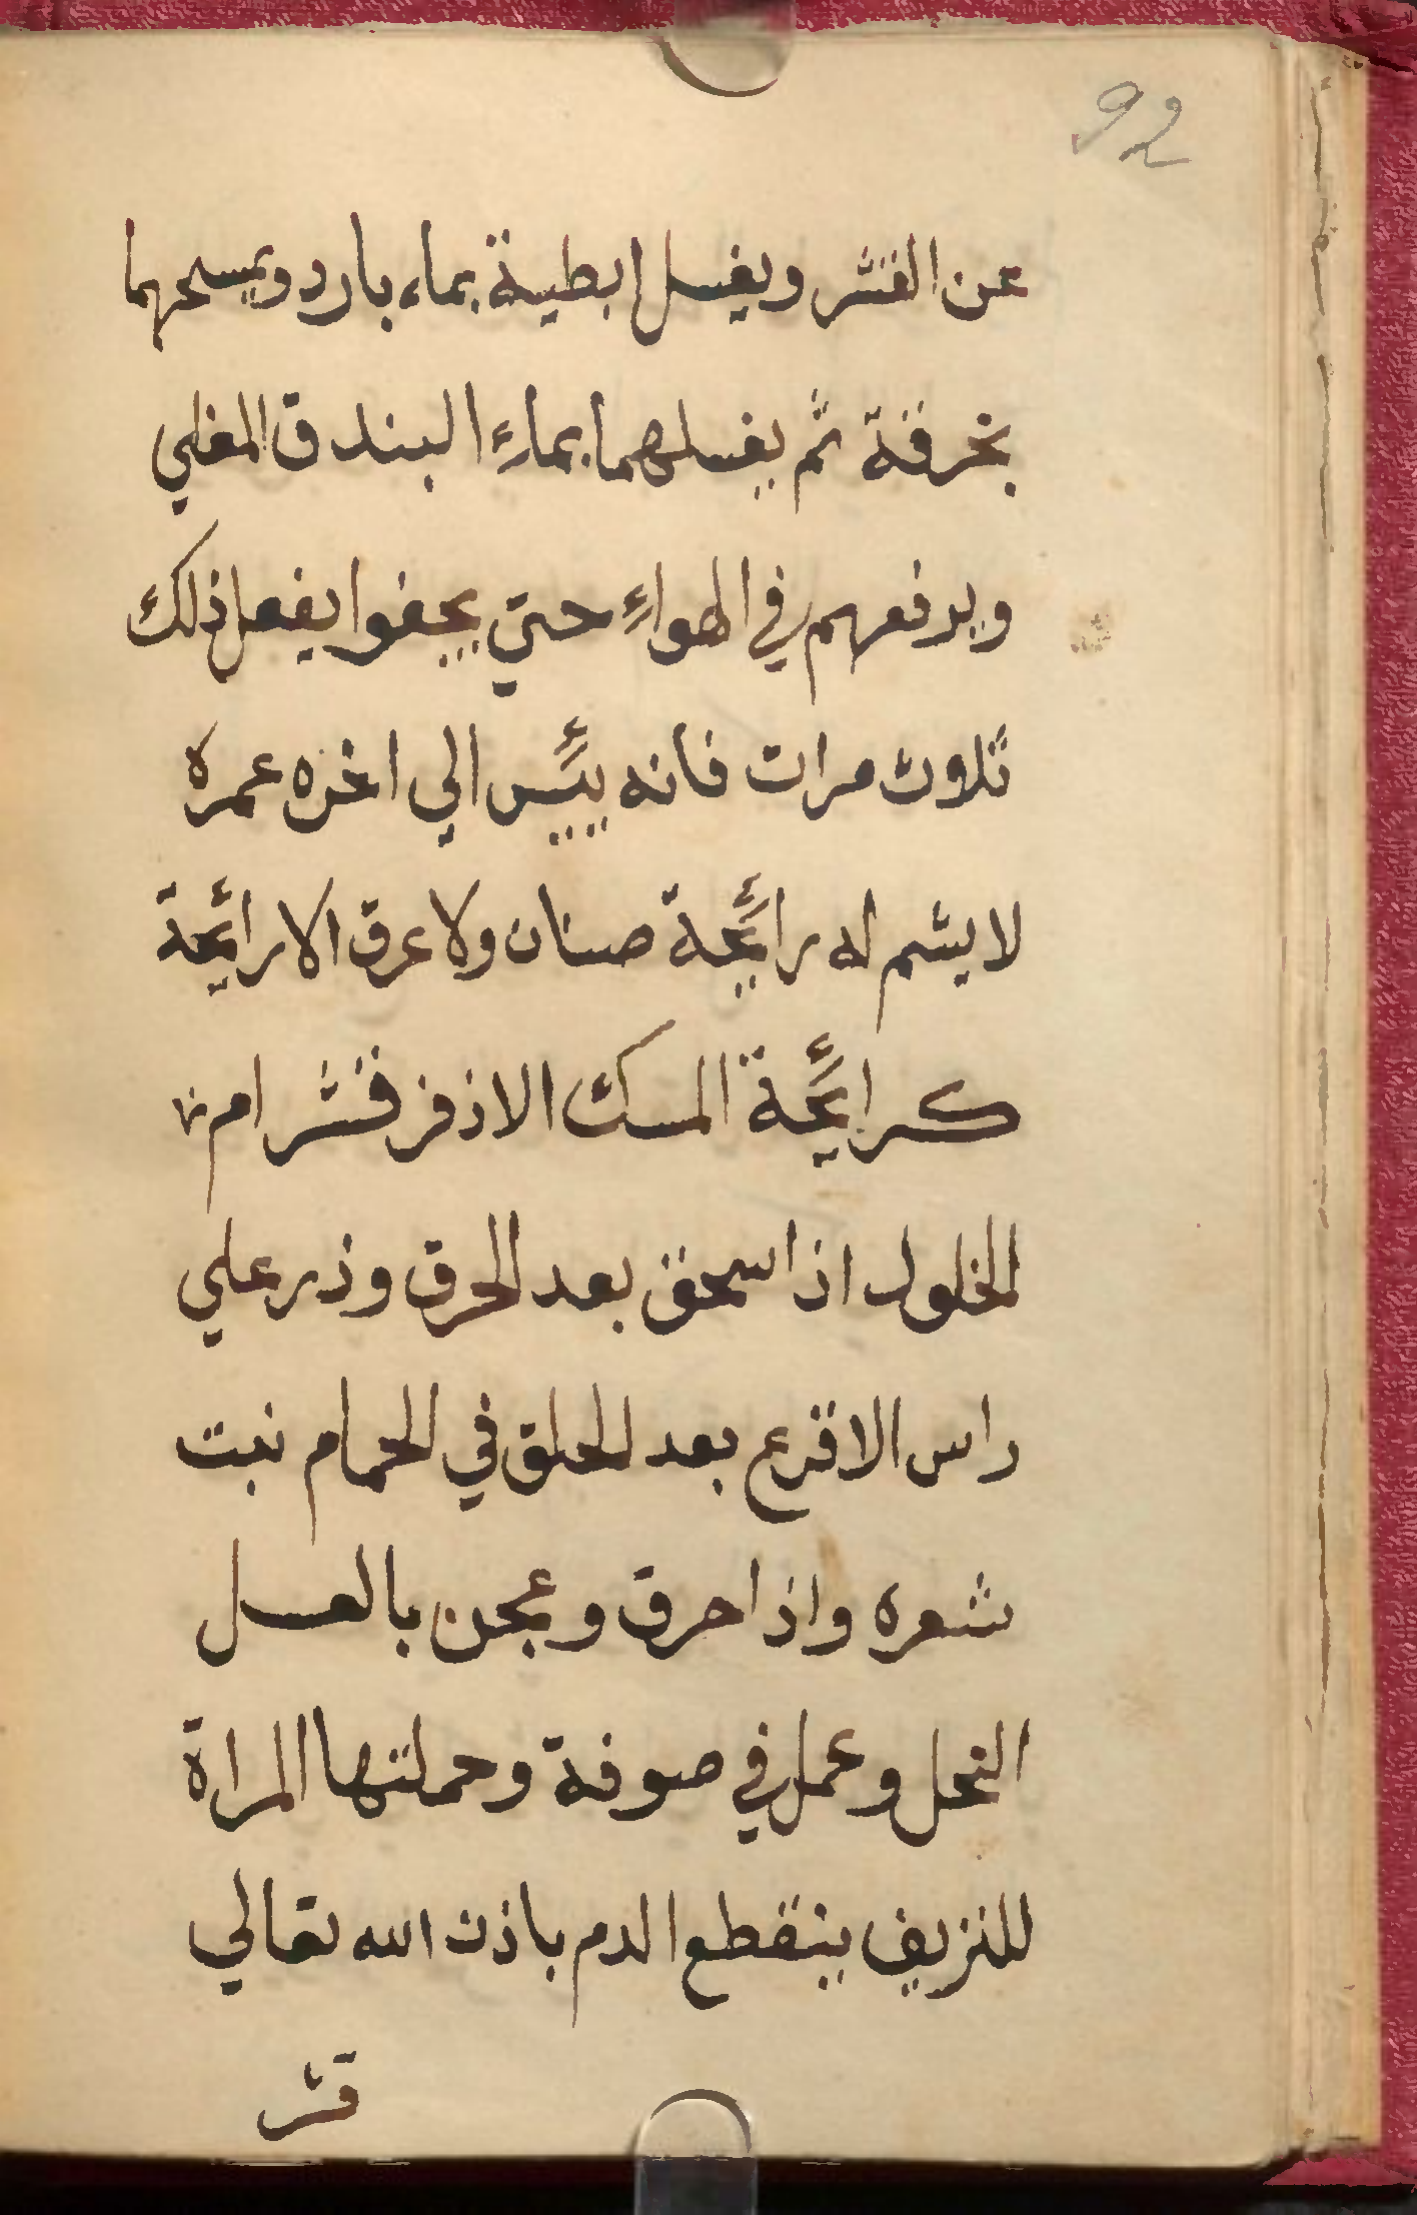 92
عن القشر ويغسل ابطيه بماء بارد ويمسحهما
بخرقة ثم يغسلهما بماءِ البندق المغلي
ويرفعهم في الهواءِ حتي يجفوا يفعل ذلك
ثلاث مرات فانه ييئس الي اخره عمره
لا يشم له رايئحة صنان ولا عرق الا رايئحة
كرايئحة المسك الاذفر قشر ام
الخلول اذا سحق بعد الحرق وذر علي
راس الاقرع بعد الحلق في الحمام نبت
شعره واذا حرق وعجن بالعسل
النحل وعمل في صوفة وحملتها المراة
للنزيف ينقطع الدم باذن الله تعالي
قشر